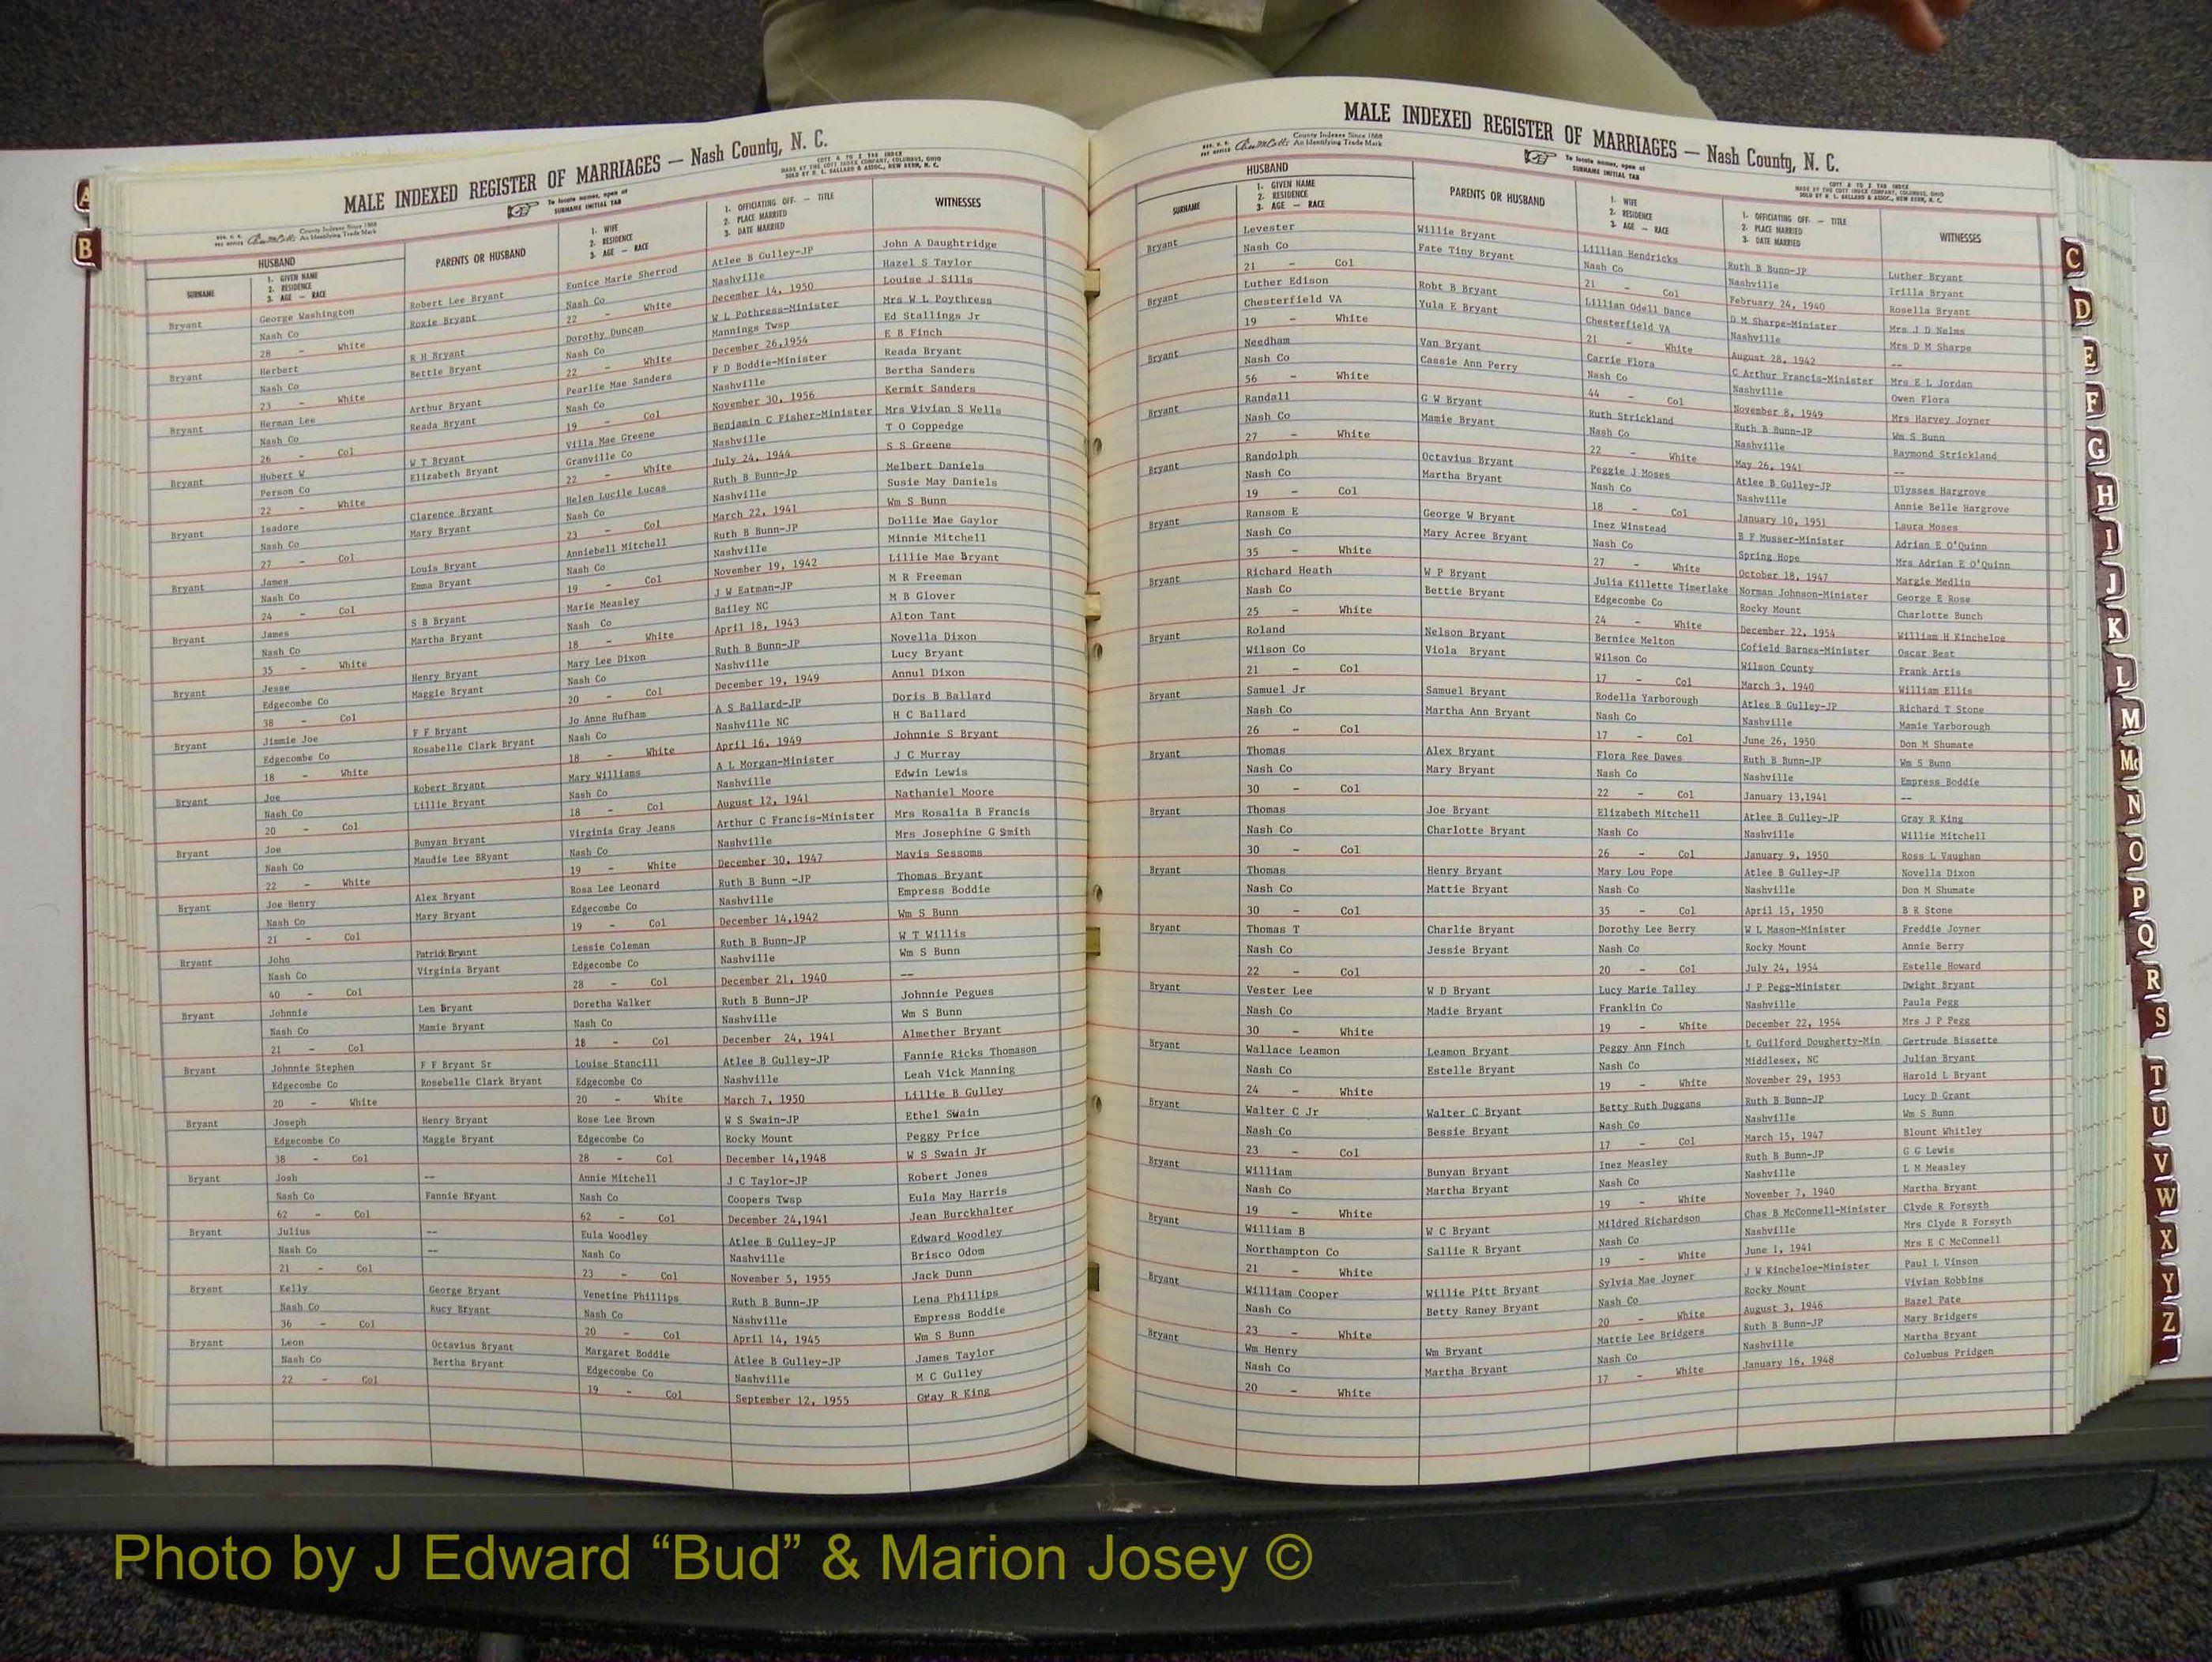 MALE INDEXED REGISTER OF MARRIAGES — Nash County, N. C.
To locate names, open at
SURNAME INITIAL TAB
COTT A TO Z TAB INDEX
MADE BY THE COTT INDEX COMPANY, COLUMBUS, OHIO
SOLD BY R. L. BALLARD & ASSOC., NEW BERN, N. C.
County Indexes Since 1888
An Identifying Trade Mark
HUSBAND
SURNAME
1. GIVEN NAME
2. RESIDENCE
3. AGE — RACE
PARENTS OR HUSBAND
1. WIFE
2. RESIDENCE
3. AGE — RACE
1. OFFICIATING OFF. — TITLE
2. PLACE MARRIED
3. DATE MARRIED
WITNESSES
Bryant George Washington Robert Lee Bryant Eunice Marie Sherrod Atlee B Gulley-JP John A Daughtridge
Nash Co Roxie Bryant Nash Co Nashville Hazel S Taylor
28 - White 22 - White December 14, 1950 Louise J Sills
Bryant Herbert R H Bryant Dorothy Duncan W L Pothress-Minister Mrs W L Poythress
Nash Co Bettie Bryant Nash Co Mannings Twsp Ed Stallings Jr
23 - White 22 - White December 26,1954 E B Finch
Bryant Herman Lee Arthur Bryant Pearlie Mae Sanders F D Boddie-Minister Reada Bryant
Nash Co Reada Bryant Nash Co Nashville Bertha Sanders
26 - Col 19 - Col November 30, 1956 Kermit Sanders
Bryant Hubert W W T Bryant Villa Mae Greene Benjamin C Fisher-Minister Mrs Vivian S Wells
Person Co Elizabeth Bryant Granville Co Nashville T O Coppedge
22 - White 22 - White July 24, 1944 S S Greene
Bryant Isadore Clarence Bryant Helen Lucile Lucas Ruth B Bunn-Jp Melbert Daniels
Nash Co Mary Bryant Nash Co Nashville Susie May Daniels
27 - Col 23 - Col March 22, 1941 Wm S Bunn
Bryant James Louis Bryant Anniebell Mitchell Ruth B Bunn-JP Dollie Mae Gaylor
Nash Co Emma Bryant Nash Co Nashville Minnie Mitchell
24 - Col 19 - Col November 19, 1942 Lillie Mae Bryant
Bryant James S B Bryant Marie Measley J W Eatman-JP M R Freeman
Nash Co Martha Bryant Nash Co Bailey NC M B Glover
35 - White 18 - White April 18, 1943 Alton Tant
Bryant Jesse Henry Bryant Mary Lee Dixon Ruth B Bunn-JP Novella Dixon
Edgecombe Co Maggie Bryant Nash Co Nashville Lucy Bryant
38 - Col 20 - Col December 19, 1949 Annul Dixon
Bryant Jimmie Joe F F Bryant Jo Anne Hufham A S Ballard-JP Doris B Ballard
Edgecombe Co Rosabelle Clark Bryant Nash Co Nashville NC H C Ballard
18 - White 18 - White April 16, 1949 Johnnie S Bryant
Bryant Joe Robert Bryant Mary Williams A L Morgan-Minister J C Murray
Nash Co Lillie Bryant Nash Co Nashville Edwin Lewis
20 - Col 18 - Col August 12, 1941 Nathaniel Moore
Bryant Joe Bunyan Bryant Virginia Gray Jeans Arthur C Francis-Minister Mrs Rosalia B Francis
Nash Co Maudie Lee BRyant Nash Co Nashville Mrs Josephine G Smith
22 - White 19 - White December 30, 1947 Mavis Sessoms
Bryant Joe Henry Alex Bryant Rosa Lee Leonard Ruth B Bunn -JP Thomas Bryant
Nash Co Mary Bryant Edgecombe Co Nashville Empress Boddie
21 - Col 19 - Col December 14,1942 Wm S Bunn
Bryant John Patrick Bryant Lessie Coleman Ruth B Bunn-JP W T Willis
Nash Co Virginia Bryant Edgecombe Co Nashville Wm S Bunn
40 - Col 28 - Col December 21, 1940 --
Bryant Johnnie Lem Bryant Doretha Walker Ruth B Bunn-JP Johnnie Pegues
Nash Co Mamie Bryant Nash Co Nashville Wm S Bunn
21 - Col 18 - Col December 24, 1941 Almether Bryant
Bryant Johnnie Stephen F F Bryant Sr Louise Stancill Atlee B Gulley-JP Fannie Ricks Thomason
Edgecombe Co Rosebelle Clark Bryant Edgecombe Co Nashville Leah Vick Manning
20 - White 20 - White March 7, 1950 Lillie B Gulley
Bryant Joseph Henry Bryant Rose Lee Brown W S Swain-JP Ethel Swain
Edgecombe Co Maggie Bryant Edgecombe Co Rocky Mount Peggy Price
38 - Col 28 - Col December 14,1948 W S Swain Jr
Bryant Josh -- Annie Mitchell J C Taylor-JP Robert Jones
Nash Co Fannie Bryant Nash Co Coopers Twsp Eula May Harris
62 - Col 62 - Col December 24,1941 Jean Burckhalter
Bryant Julius -- Eula Woodley Atlee B Gulley-JP Edward Woodley
Nash Co -- Nash Co Nashville Brisco Odom
21 - Col 23 - Col November 5, 1955 Jack Dunn
Bryant Kelly George Bryant Venetine Phillips Ruth B Bunn-JP Lena Phillips
Nash Co Rucy Bryant Nash Co Nashville Empress Boddie
36 - Col 20 - Col April 14, 1945 Wm S Bunn
Bryant Leon Octavius Bryant Margaret Boddie Atlee B Gulley-JP James Taylor
Nash Co Bertha Bryant Edgecombe Co Nashville M C Gulley
22 - Col 19 - Col September 12, 1955 Gray R King
MALE INDEXED REGISTER OF MARRIAGES — Nash County, N. C.
County Indexes Since 1888
An Identifying Trade Mark
To locate names, open at
SURNAME INITIAL TAB
COTT A TO Z TAB INDEX
MADE BY THE COTT INDEX COMPANY, COLUMBUS, OHIO
SOLD BY R. L. BALLARD & ASSOC., NEW BERN, N. C.
HUSBAND
SURNAME
1. GIVEN NAME
2. RESIDENCE
3. AGE — RACE
PARENTS OR HUSBAND
1. WIFE
2. RESIDENCE
3. AGE — RACE
1. OFFICIATING OFF. — TITLE
2. PLACE MARRIED
3. DATE MARRIED
WITNESSES
Bryant Levester Willie Bryant Lillian Hendricks Ruth B Bunn-JP Luther Bryant
Nash Co Fate Tiny Bryant Nash Co Nashville Irilla Bryant
21 - Col 21 - Col February 24, 1940 Rosella Bryant
Bryant Luther Edison Robt B Bryant Lillian Odell Dance D M Sharpe-Minister Mrs J D Nelms
Chesterfield VA Yula E Bryant Chesterfield VA Nashville Mrs D M Sharpe
19 - White 21 - White August 28, 1942 --
Bryant Needham Van Bryant Carrie Flora C Arthur Francis-Minister Mrs E L Jordan
Nash Co Cassie Ann Perry Nash Co Nashville Owen Flora
56 - White 44 - Col November 8, 1949 Mrs Harvey Joyner
Bryant Randall G W Bryant Ruth Strickland Ruth B Bunn-JP Wm S Bunn
Nash Co Mamie Bryant Nash Co Nashville Raymond Strickland
27 - White 22 - White May 26, 1941 --
Bryant Randolph Octavius Bryant Peggie J Moses Atlee B Gulley-JP Ulysses Hargrove
Nash Co Martha Bryant Nash Co Nashville Annie Belle Hargrove
19 - Col 18 - Col January 10, 1951 Laura Moses
Bryant Ransom E George W Bryant Inez Winstead B F Musser-Minister Adrian E O'Quinn
Nash Co Mary Acree Bryant Nash Co Spring Hope Mrs Adrian E O'Quinn
35 - White 27 - White October 18, 1947 Margie Medlin
Bryant Richard Heath W P Bryant Julia Killette Timerlake Norman Johnson-Minister George E Rose
Nash Co Bettie Bryant Edgecombe Co Rocky Mount Charlotte Bunch
25 - White 24 - White December 22, 1954 William H Kincheloe
Bryant Roland Nelson Bryant Bernice Melton Cofield Barnes-Minister Oscar Best
Wilson Co Viola Bryant Wilson Co Wilson County Frank Artis
21 - Col 17 - Col March 3, 1940 William Ellis
Bryant Samuel Jr Samuel Bryant Rodella Yarborough Atlee B Gulley-JP Richard T Stone
Nash Co Martha Ann Bryant Nash Co Nashville Mamie Yarborough
26 - Col 17 - Col June 26, 1950 Don M Shumate
Bryant Thomas Alex Bryant Flora Ree Dawes Ruth B Bunn-JP Wm S Bunn
Nash Co Mary Bryant Nash Co Nashville Empress Boddie
30 - Col 22 - Col January 13,1941 --
Bryant Thomas Joe Bryant Elizabeth Mitchell Atlee B Gulley-JP Gray R King
Nash Co Charlotte Bryant Nash Co Nashville Willie Mitchell
30 - Col 26 - Col January 9, 1950 Ross L Vaughan
Bryant Thomas Henry Bryant Mary Lou Pope Atlee B Gulley-JP Novella Dixon
Nash Co Mattie Bryant Nash Co Nashville Don M Shumate
30 - Col 35 - Col April 15, 1950 B R Stone
Bryant Thomas T Charlie Bryant Dorothy Lee Berry W L Mason-Minister Freddie Joyner
Nash Co Jessie Bryant Nash Co Rocky Mount Annie Berry
22 - Col 20 - Col July 24, 1954 Estelle Howard
Bryant Vester Lee W D Bryant Lucy Marie Talley J P Pegg-Minister Dwight Bryant
Nash Co Madie Bryant Franklin Co Nashville Paula Pegg
30 - White 19 - White December 22, 1954 Mrs J P Pegg
Bryant Wallace Leamon Leamon Bryant Peggy Ann Finch L Guilford Dougherty-Min Gertrude Bissette
Nash Co Estelle Bryant Nash Co Middlesex, NC Julian Bryant
24 - White 19 - White November 29, 1953 Harold L Bryant
Bryant Walter C Jr Walter C Bryant Betty Ruth Duggans Ruth B Bunn-JP Lucy D Grant
Nash Co Bessie Bryant Nash Co Nashville Wm S Bunn
23 - Col 17 - Col March 15, 1947 Blount Whitley
Bryant William Bunyan Bryant Inez Measley Ruth B Bunn-JP G G Lewis
Nash Co Martha Bryant Nash Co Nashville L M Measley
19 - White 19 - White November 7, 1940 Martha Bryant
Bryant William B W C Bryant Mildred Richardson Chas B McConnell-Minister Clyde R Forsyth
Northampton Co Sallie R Bryant Nash Co Nashville Mrs Clyde R Forsyth
21 - White 19 - White June 1, 1941 Mrs E C McConnell
Bryant William Cooper Willie Pitt Bryant Sylvia Mae Joyner J W Kincheloe-Minister Paul L Vinson
Nash Co Betty Raney Bryant Nash Co Rocky Mount Vivian Robbins
23 - White 20 - White August 3, 1946 Hazel Pate
Bryant Wm Henry Wm Bryant Mattie Lee Bridgers Ruth B Bunn-JP Mary Bridgers
Nash Co Martha Bryant Nash Co Nashville Martha Bryant
20 - White 17 - White January 16, 1948 Columbus Pridgen
A
B
C
D
E
F
G
H
I
J
K
L
M
Mc
N
O
P
Q
R
S
T
U
V
W
X
Y
Z
Photo by J Edward “Bud” & Marion Josey ©